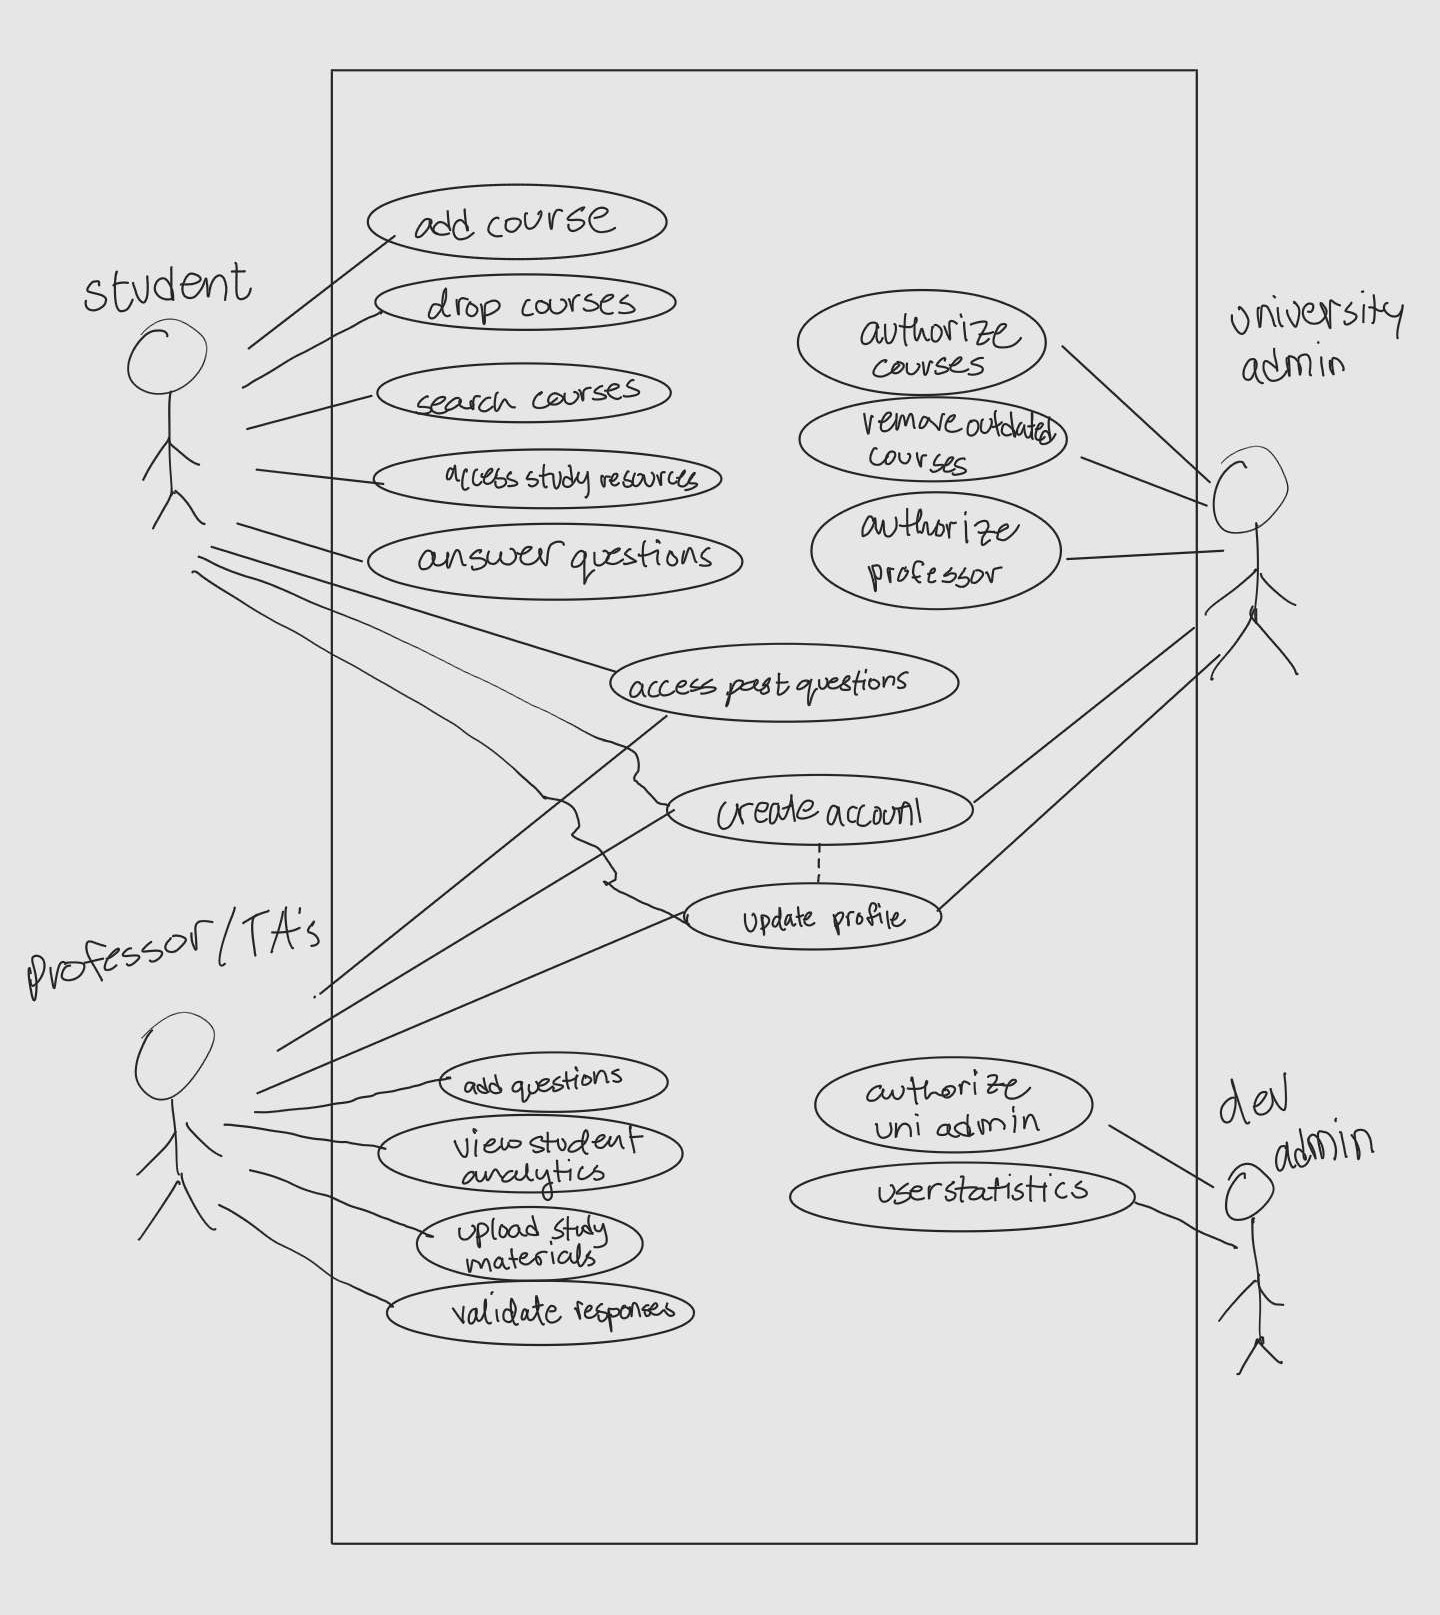 student
add course
drop courses
search courses
access study resources
answer questions
authorize
courses
remove outdated
courses
authorize
professor
university
admin
access past questions
create account
update profile
Professor/TA's
add questions
view student
analytics
upload study
materials
validate responses
authorize
uni admin
user statistics
dev
admin